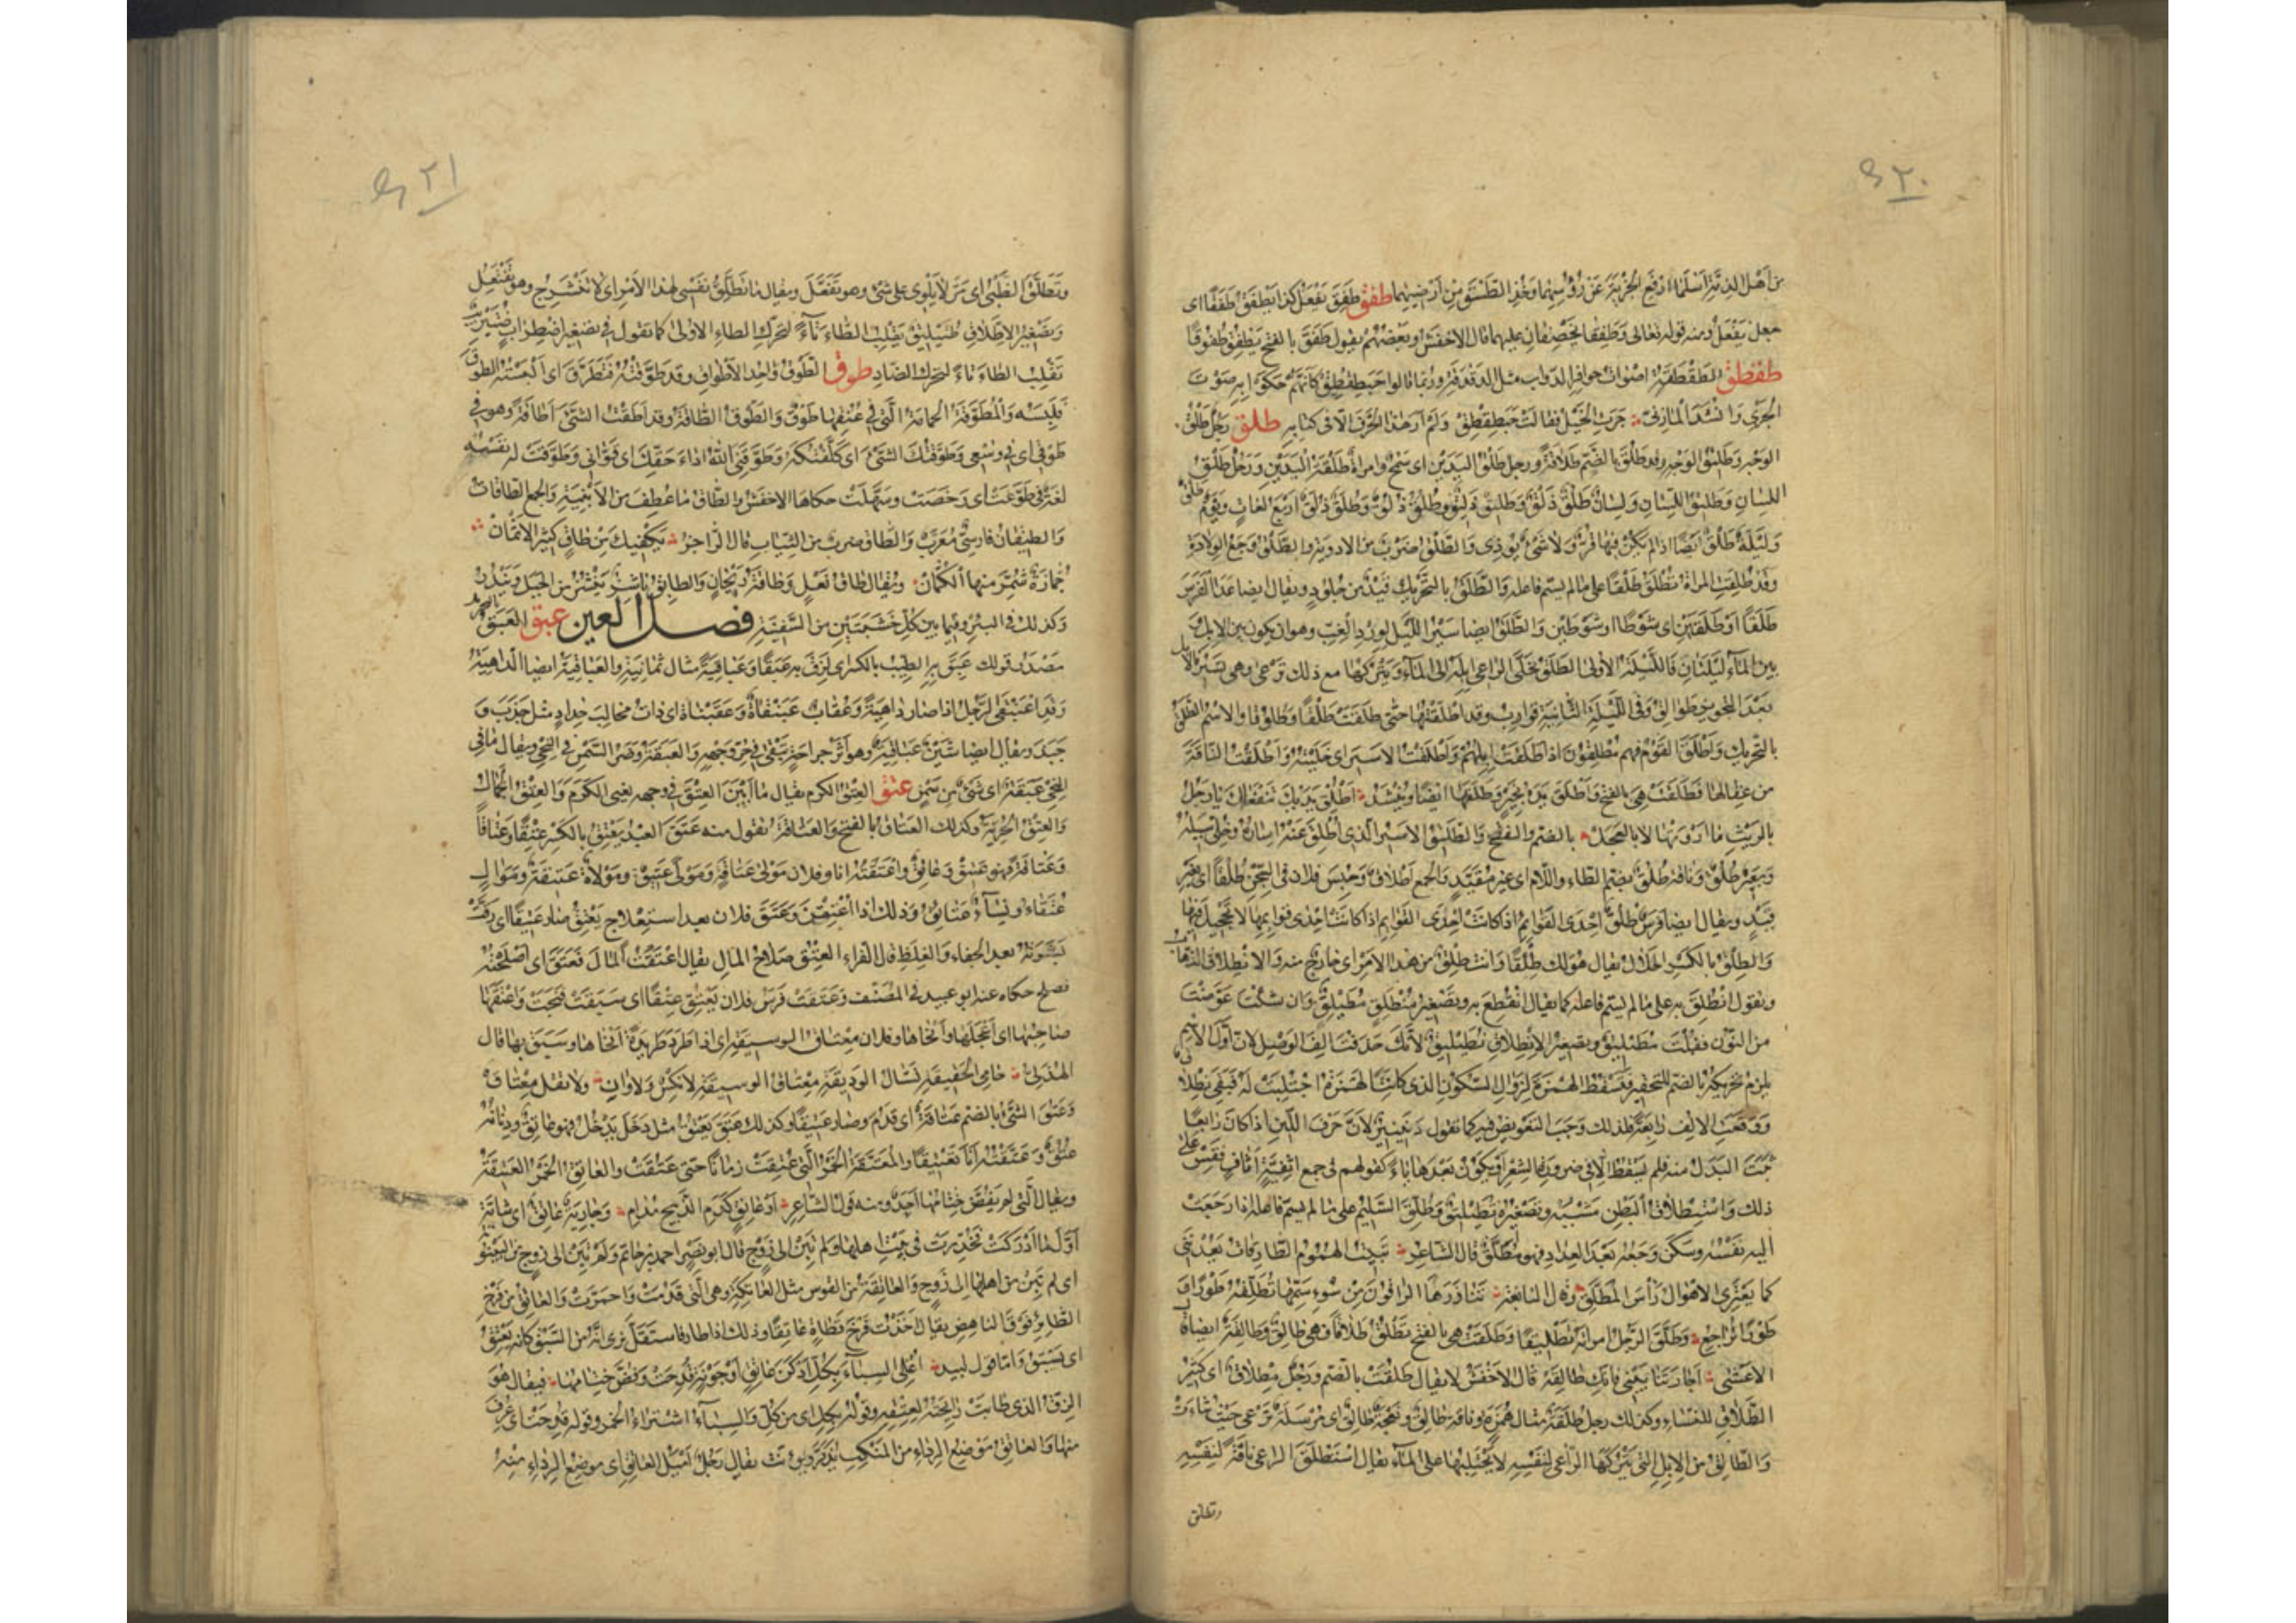 ٩٢٠
من اهل الذمة اسلما ارفع الجزية عن رؤسهما وخذ الطسق من ارضيهما طفق طفق يفعل كذا يطفق طفقا اى
جعل يفعل ومنه قوله تعالى وطفقا يخصفان عليهما قال الاخفش وبعضهم يقول طفق بالفتح يطفق طفوقا
طقطق الطقطقة اصوات حوافر الدواب مثل الدقدقة وربما قالوا حبطقطق كانهم حكوا به صوت
الجرى وانشد المازنى جرت الخيل فقالت حبطقطق ولم ار هذا الحرف الا فى كتابه طلق رجل طلق
الوجه وطليق الوجه وقد طلق بالضم طلاقة ورجل طلق اليدين اى سمح وامراة طلقة اليدين ورجل طلق
اللسان وطليق اللسان ولسان طلق ذلق وطليق ذليق وطلق ذلق وطلق ذلق اربع لغات ويوم طلق
وليلة طلق ايضا اذا لم يكن فيها قر ولا شىء يوذى والطلق ضرب من الادوية والطلق وجع الولادة
وقد طلقت المراة تطلق طلقا على ما لم يسم فاعله والطلق بالتحريك قيد من جلود ويقال ايضا عدا الفرس
طلقا او طلقين اى شوطا او شوطين والطلق ايضا سير الليل لورد الغب وهو ان يكون بين الابل
وبين الماء ليلتان فالليلة الاولى الطلق يخلى الراعى ابله الى الماء ويتركها مع ذلك ترعى وهى تسير فالابل
بعد التحويز طوالق وفى الليلة الثانية قوارب وقد اطلقتها حتى طلقت طلقا وطلوقا والاسم الطلق
بالتحريك واطلق القوم فهم مطلقون اذا طلقت ابلهم واطلقت الاسير اى خليته واطلقت الناقة
من عقالها فطلقت هى بالفتح واطلق يده بخير وطلقها ايضا وينشد اطلق يديك تنفعاك يا رجل
بالريث ما ارويتها لا بالعجل بالضم والفتح والطليق الاسير الذى اطلق عنه اساره وخلى سبيله
وبعير طلق وناقة طلق بضم الطاء واللام اى غير مقيد والجمع اطلاق وحبس فلان فى السجن طلقا اى بغير
قيد ويقال ايضا فرس طلق احدى القوائم اذا كانت احدى قوائمها لا تحجيل فيها
والطلق بالكسر الحلال يقال هو لك طلقا وانت طلق من هذا الامر اى خارج منه والانطلاق الذهاب
وتقول انطلق به على ما لم يسم فاعله كما يقال انقطع به وتصغير منطلق مطيلق وان شئت عوضت
من النون فقلت مطيليق وتصغير الانطلاق نطيليق لانك حذفت الف الوصل لان اول الاسم
يلزم تحريكه بالضم للتحقير فتسقط الهمزة لزوال السكون الذى كانت الهمزة اجتلبت له فبقى نطلاق
ووقعت الالف رابعة فلذلك وجب التعويض فيه كما تقول دنينير لان حرف اللين اذا كان رابعا
ثبت البدل منه فلم يسقط الا فى ضرورة الشعر او يكون بعدها ياء كقولهم فى جمع اثفية اثاف فقس على
ذلك واستطلاق البطن مشيه وتصغيره تطيليق وطلق السليم على ما لم يسم فاعله اذا رجعت
اليه نفسه وسكن وجعه بعد العداد فهو مطلق قال الشاعر تبيت الهموم الطارقات يعدننى
كما يعترى الاهوال راس المطلق وقال النابغة تناذرها الراقون من سوء سمها تطلقه طورا و
طورا تراجع وطلق الرجل امراته تطليقا وطلقت هى بالفتح تطلق طلاقا فهى طالق وطالقة ايضا قال
الاعشى اجارتنا بينى فانك طالقه قال الاخفش لا يقال طلقت بالضم ورجل مطلاق اى كثير
الطلاق للنساء وكذلك رجل طلقة مثال همزة وناقة طالق ونعجة طالق اى مرسلة ترعى حيث شاءت
والطالق من الابل التى يتركها الراعى لنفسه لا يحتلبها على الماء يقال استطلق الراعى ناقة لنفسه
وتطلق
٩٢١
وتطلق الظبى اى مر لا يلوى على شىء وهو تفعل ويقال ما تطلق نفسى لهذا الامر اى لا تنشرح وهو تفتعل
وتصغير الاطلاق طتيليق بقلب الطاء تاء لتحرك الطاء الاولى كما تقول فى تصغير اضطراب ضتيريب
تقلب الطاء تاء لتحرك الضاد طوق الطوق واحد الاطواق وقد طوقته فتطوق اى البسته الطوق
فلبسه والمطوقة الحمامة التى فى عنقها طوق والطوق الطاقة وقد اطقت الشىء اطاقة وهو فى
طوقى اى فى وسعى وطوقتك الشىء اى كلفتكه وطوقنى الله اداء حقك اى قوانى وطوقت له نفسه
لغة فى طوعت اى رخصت وسهلت حكاها الاخفش والطاق ما عطف من الابنية والجمع الطاقات
والطيقان فارسى معرب والطاق ضرب من الثياب قال الراجز يكفيك من طاق كثير الاثمان
جمازة شمر منها الكمان ويقال طاق نعل وطاقة ريحان والطائق ناشز ينشز من الجبل ويندر
وكذلك فى البئر وفيما بين كل خشبتين من السفينة فصل العين عبق العبق
مصدر قولك عبق به الطيب بالكسر اى لزق به عبقا وعباقية مثال ثمانية والعباقية ايضا الداهية
وقد اعبنقى الرجل اذا صار داهية وعقاب عبنقاة وعقبناة اى ذات مخالب حداد مثل جذب و
جبذ ويقال ايضا شين عباقية وهو اثر جراحة تبقى فى حر وجهه والعبقة وضر السمن فى النحى ويقال ما فى
النحى عبقة اى شىء من سمن عتق العتق الكرم يقال ما ابين العتق فى وجهه يعنى الكرم والعتق الجمال
والعتق الحرية وكذلك العتاق بالفتح والعتاقة تقول منه عتق العبد يعتق بالكسر عتقا وعتاقا
وعتاقة فهو عتيق وعاتق واعتقته انا وفلان مولى عتاقة ومولى عتيق ومولاة عتيقة وموال
عتقاء ونساء عتائق وذلك اذا اعتقن وعتق فلان بعد استعلاج يعتق صار عتيقا اى رقت
بشرته بعد الجفاء والغلظ قال الفراء العتق صلاح المال يقال اعتقت المال فعتق اى اصلحته
فصلح حكاه عنه ابو عبيد فى المصنف وعتقت فرس فلان يعتق عتقا اى سبقت فنجت واعتقها
صاحبها اى اعجلها وانجاها وفلان معتاق الوسيقة اى اذا طرد طريدة انجاها وسبق بها قال
الهذلى حامى الحقيقة نسال الوديقة معتاق الوسيقة لا نكس ولا وان ولا تقل معتاق
وعتق الشىء بالضم عتاقة اى قدم وصار عتيقا وكذلك عتق يعتق مثل دخل يدخل فهو عاتق ودنانير
عتق وعتقته انا تعتيقا والمعتقة الخمر التى عتقت زمانا حتى عتقت والعاتق الخمر العتيقة
ويقال التى لم يفض ختامها احد ومنه قول الشاعر او عاتق كدم الذبيح مدام وجارية عاتق اى شابة
اول ما ادركت فخدرت فى بيت اهلها ولم تبن الى زوج قال ابو نصر احمد بن حاتم ولم تبن الى زوج من البينونة
اى لم تبن من اهلها الى زوج والعاتقة من القوس مثل العاتكة وهى التى قدمت واحمرت والعاتق من فرخ
الطائر فوق الناهض يقال اخذت فرخ قطاة عاتقا وذلك اذا طار فاستقل نرى انه من السبق كانه يعتق
اى يسبق واما قول لبيد اغلى السباء بكل ادكن عاتق او جونة قدحت وفض ختامها فيقال هو
الزق الذى طابت رائحته لعتقه وقوله بكل اى من كل والسباء اشتراء الخمر وقوله قدحت اى غرف
منها والعاتق موضع الرداء من المنكب يذكر ويؤنث يقال رجل اميل العاتق اى موضع الرداء منه